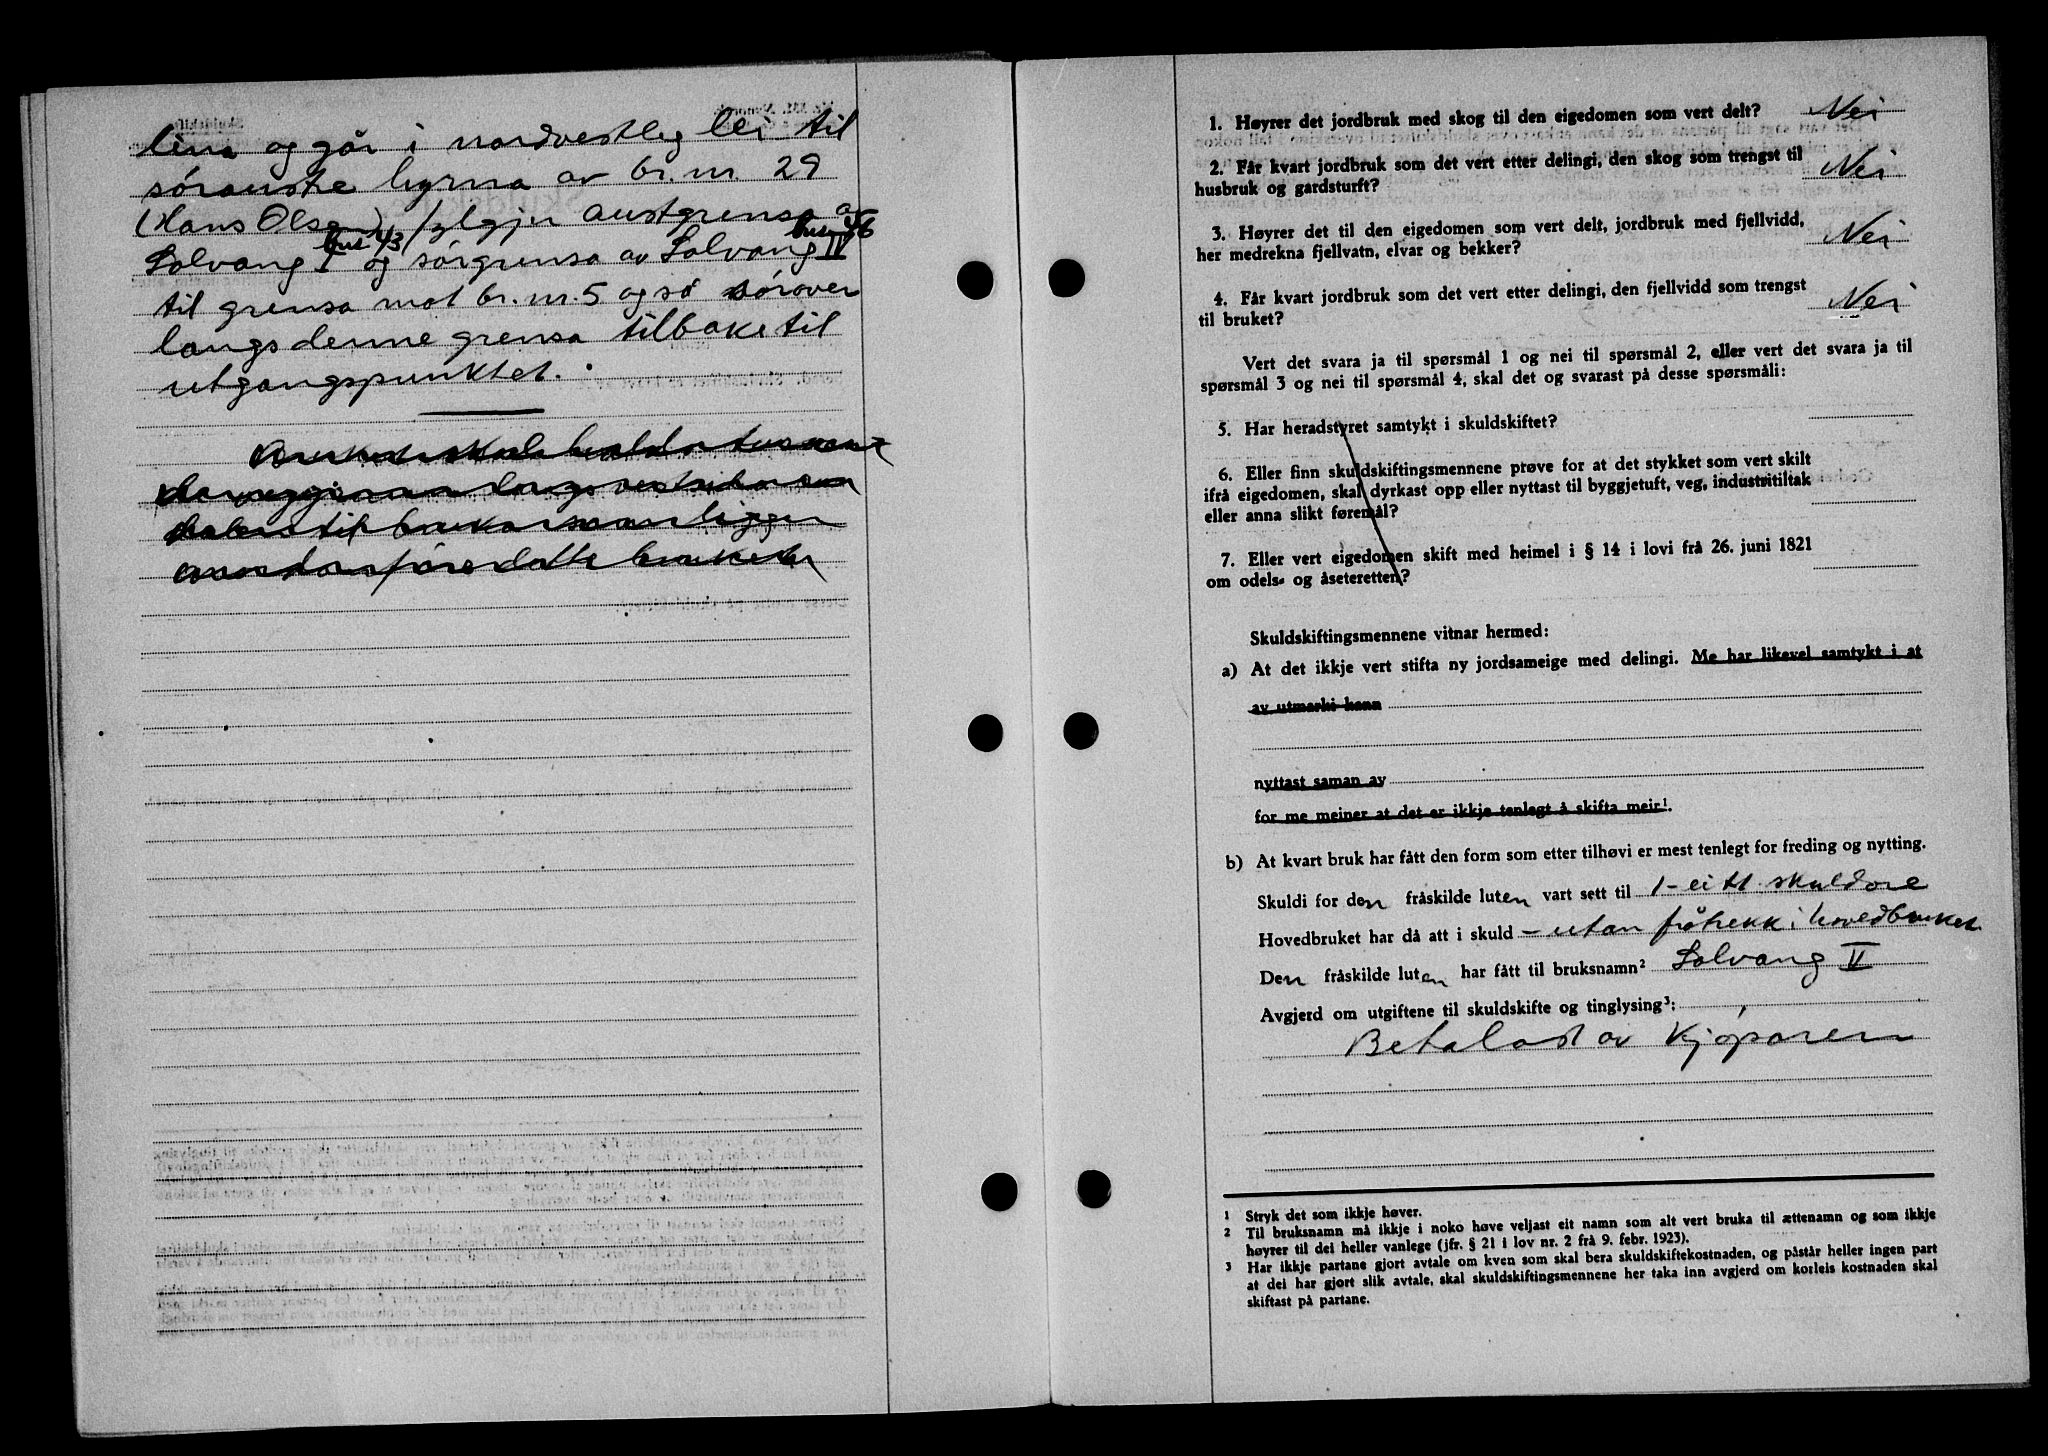 lina og går i nordvestleg lei til
søraustre hyrna av br. nr. 29
(Hans Olsen), følgjer austgrensa av
bnr 43 bnr 46
Solvang I og sørgrensa av Solvang II
til grensa mot br. nr. 5 og så sørover
langs denne grensa tilbake til
utgangspunktet.
1. Høyrer det jordbruk med skog til den eigedomen som vert delt? Nei
2. Får kvart jordbruk som det vert etter delingi, den skog som trengst til
husbruk og gardsturft? Nei
3. Høyrer det til den eigedomen som vert delt, jordbruk med fjellvidd,
her medrekna fjellvatn, elvar og bekker? Nei
4. Får kvart jordbruk som det vert etter delingi, den fjellvidd som trengst
til bruket? Nei
Vert det svara ja til spørsmål 1 og nei til spørsmål 2, eller vert det svara ja til
spørsmål 3 og nei til spørsmål 4, skal det og svarast på desse spørsmåli:
5. Har heradstyret samtykt i skuldskiftet?
6. Eller finn skuldskiftingsmennene prøve for at det stykket som vert skilt
ifrå eigedomen, skal dyrkast opp eller nyttast til byggjetuft, veg, industritiltak
eller anna slikt føremål?
7. Eller vert eigedomen skift med heimel i § 14 i lovi frå 26. juni 1821
om odels- og åseteretten?
Skuldskiftingsmennene vitnar hermed:
a) At det ikkje vert stifta ny jordsameige med delingi. Me har likevel samtykt i at
av utmarki kann
nyttast saman av
for me meiner at det er ikkje tenlegt å skifta meir¹.
b) At kvart bruk har fått den form som etter tilhøvi er mest tenlegt for freding og nytting.
Skuldi for den fråskilde luten vart sett til 1 - eitt skuldøre
Hovedbruket har då att i skuld - utan fråtrekk i hovedbruket.
Den fråskilde luten har fått til bruksnamn² Solvang V
Avgjerd om utgiftene til skuldskifte og tinglysing³:
Betalast av kjøparen
1 Stryk det som ikkje høver.
2 Til bruksnamn må ikkje i noko høve veljast eit namn som alt vert bruka til ættenamn og som ikkje
høyrer til dei heller vanlege (jfr. § 21 i lov nr. 2 frå 9. febr. 1923).
3 Har ikkje partane gjort avtale om kven som skal bera skuldskiftekostnaden, og påstår heller ingen part
at dei har gjort slik avtale, skal skuldskiftingsmennene her taka inn avgjerd om korleis kostnaden skal
skiftast på partane.